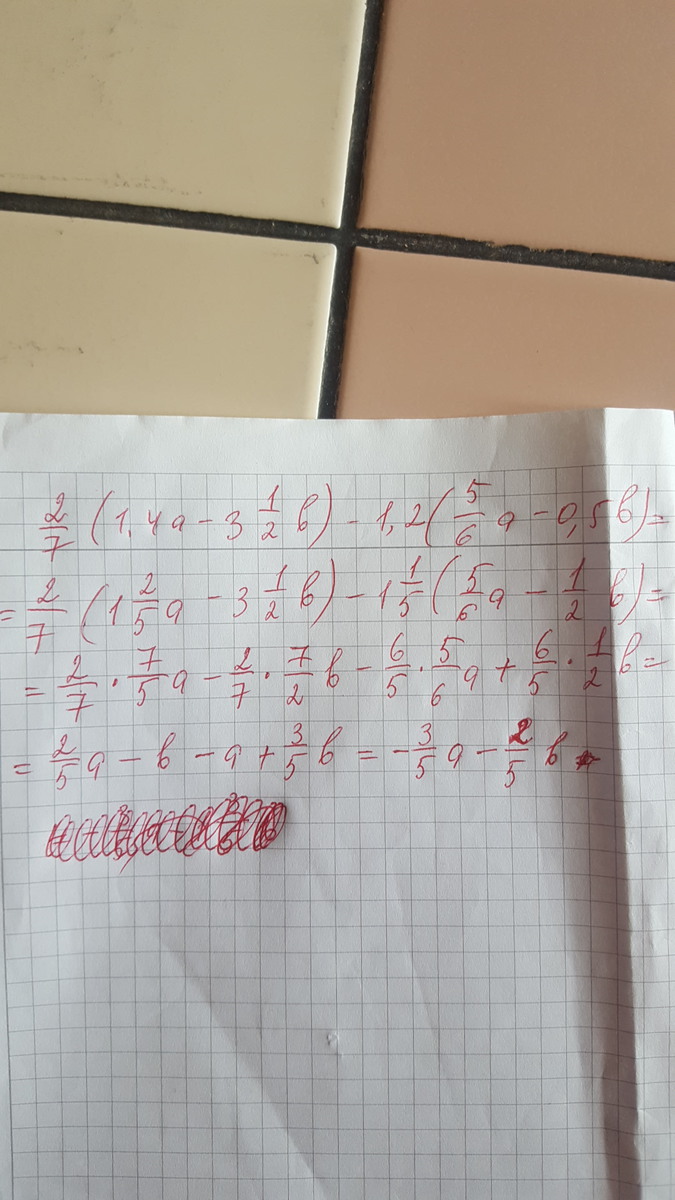 2/7 (1,4a - 3 1/2 b) - 1,2 (5/6 a - 0,5b) =
= 2/7 (1 2/5 a - 3 1/2 b) - 1 1/5 (5/6 a - 1/2 b) =
= 2/7 · 7/5 a - 2/7 · 7/2 b - 6/5 · 5/6 a + 6/5 · 1/2 b =
= 2/5 a - b - a + 3/5 b = - 3/5 a - 2/5 b